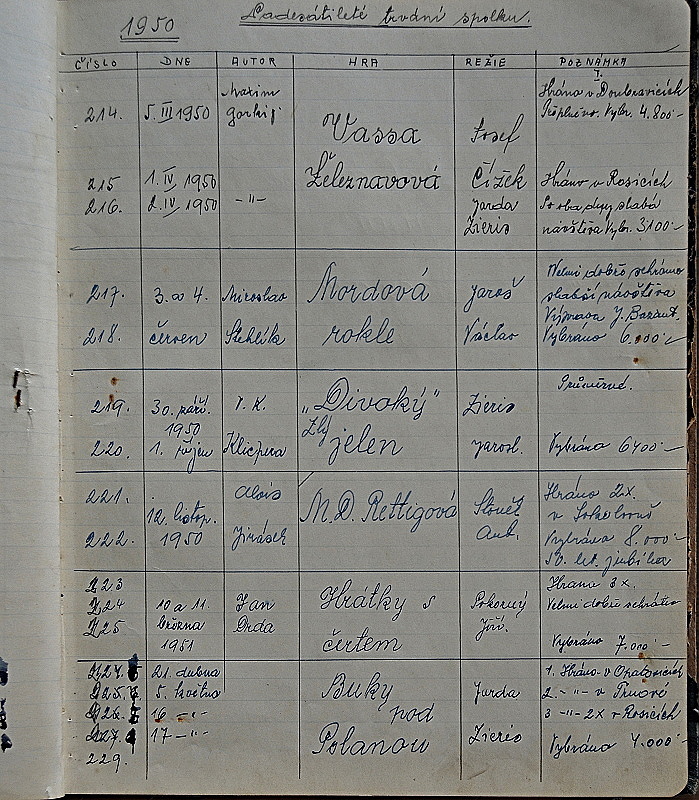 1950 Padesátileté trvání spolku.
ČÍSLO DNE AUTOR HRA REŽIE POZNÁMKA
I.
Maxim Hráno v Doubravicích
214. 5. III 1950 Gorkij Vybr. 4.800-
Vassa Josef
Železnavová Čížek
215 1. IV. 1950 Hráno v Rosicích
216. 2. IV. 1950 -"- Jarda slabá
Zieris návštěva Vybr. 3100-
Velmi dobře sehráno
217. 3. a 4. Miroslav Mordová Jaroš slabší návštěva
Výprava J. Bažant.
218. červen Stehlík rokle Václav Vybráno 6.000-
Průměrné.
219. 30. září. V. K. „Divoký" Zieris
1950 Zlý
220. 1. říjen Klicpera jelen Jarosl. Vybráno 6400-
221. Alois Hráno 2x.
12. listop. M. D. Rettigová v Sokolovně
222. 1950 Jirásek Ant. Vybráno 8.000-
50. let. jubilea
223 Hráno 3x.
224 10 a 11. Jan Hrátky s Pokorný Velmi dobře sehráno
225 března Drda Jiří.
1951 čertem Vybráno 7.000-
21. dubna 1. Hráno v Opatovicích
5. května Buky Jarda 2. -"- v Trnové
16 -"- pod 3 -"- 2x v Rosicích
17 -"- Polanou Zieris Vybráno 4.000-
229.